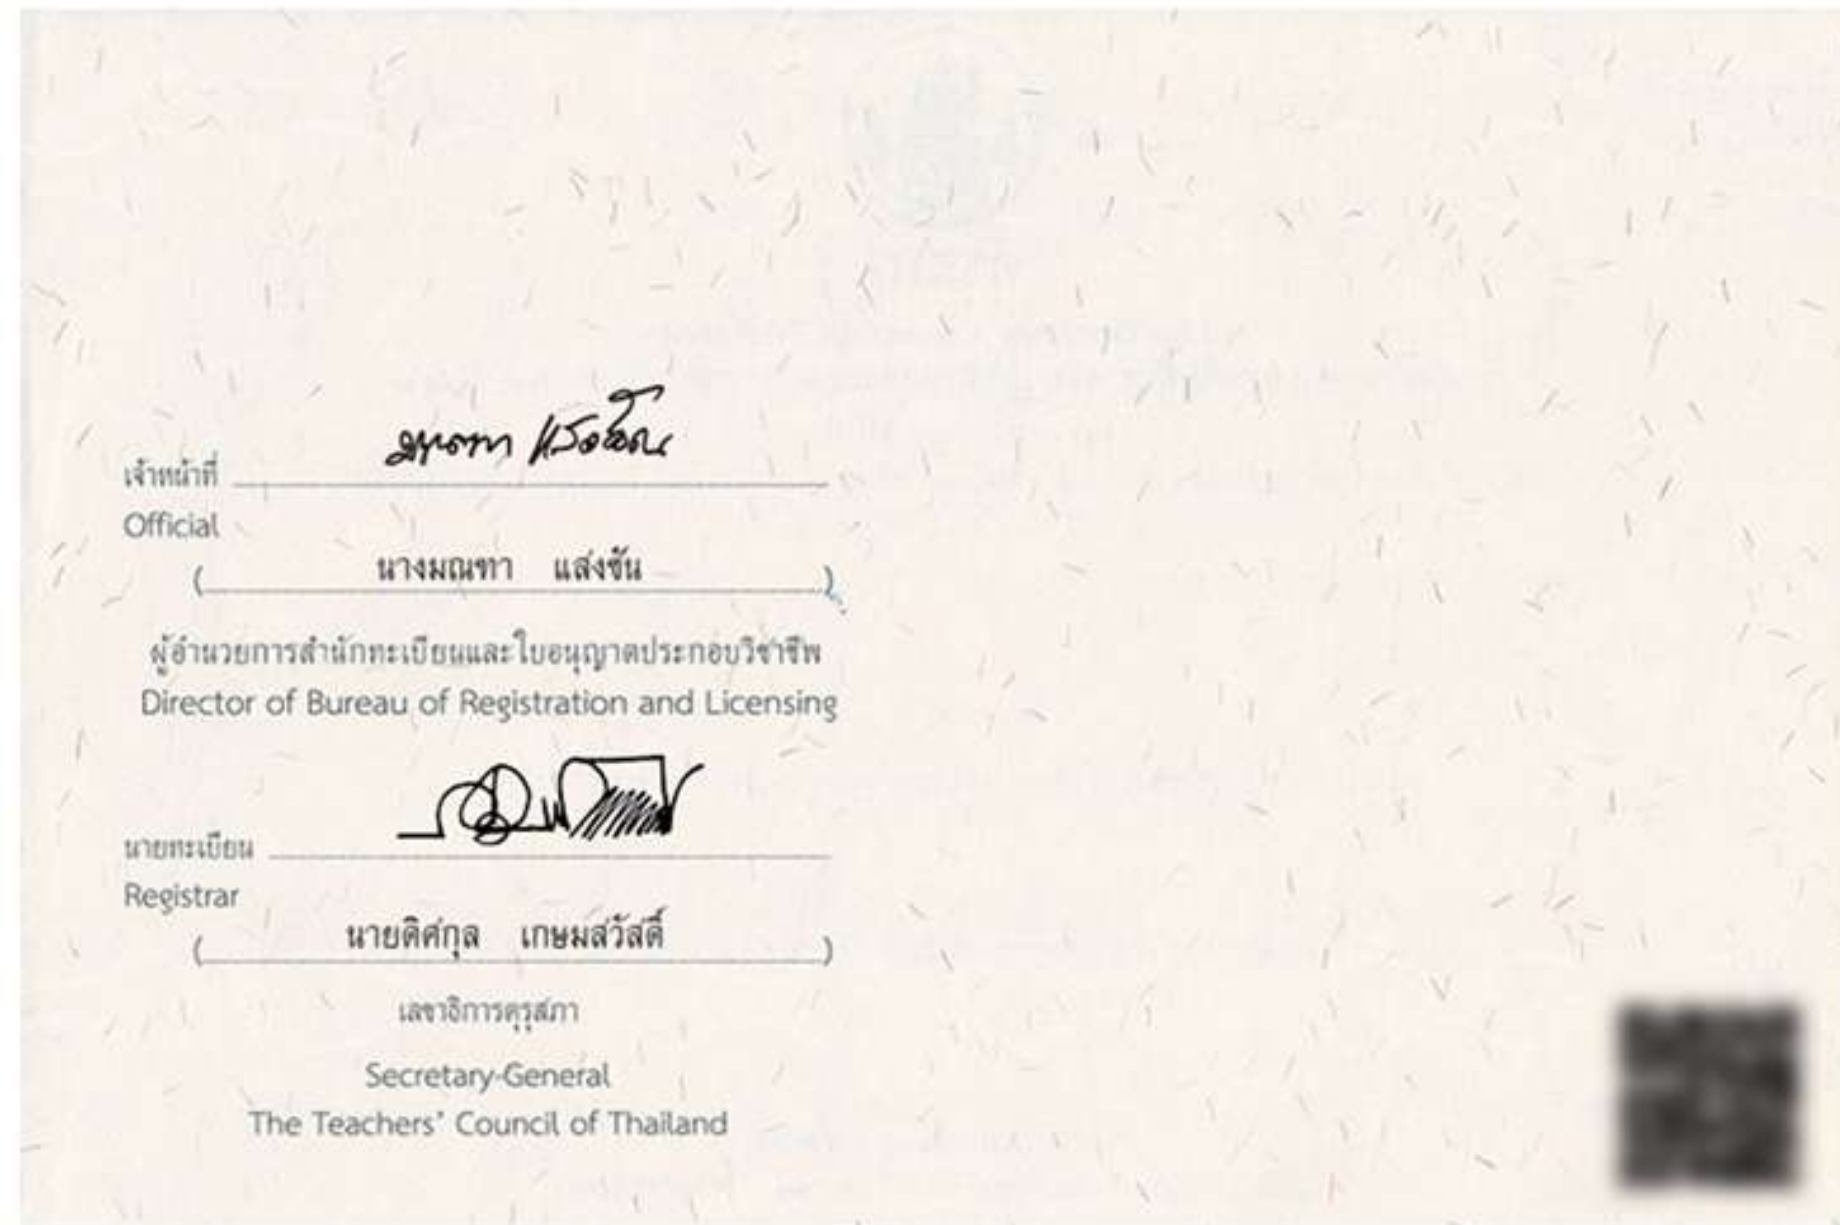 มณฑา แสงชัน
เจ้าหน้าที่
Official
( นางมณฑา แส่งซัน )
ผู้อำนวยการสำนักทะเบียนและใบอนุญาตประกอบวิชาชีพ
Director of Bureau of Registration and Licensing
นายทะเบียน
Registrar
( นายดิศกุล เกษมสวัสดิ์ )
เลขาธิการคุรุสภา
Secretary-General
The Teachers' Council of Thailand